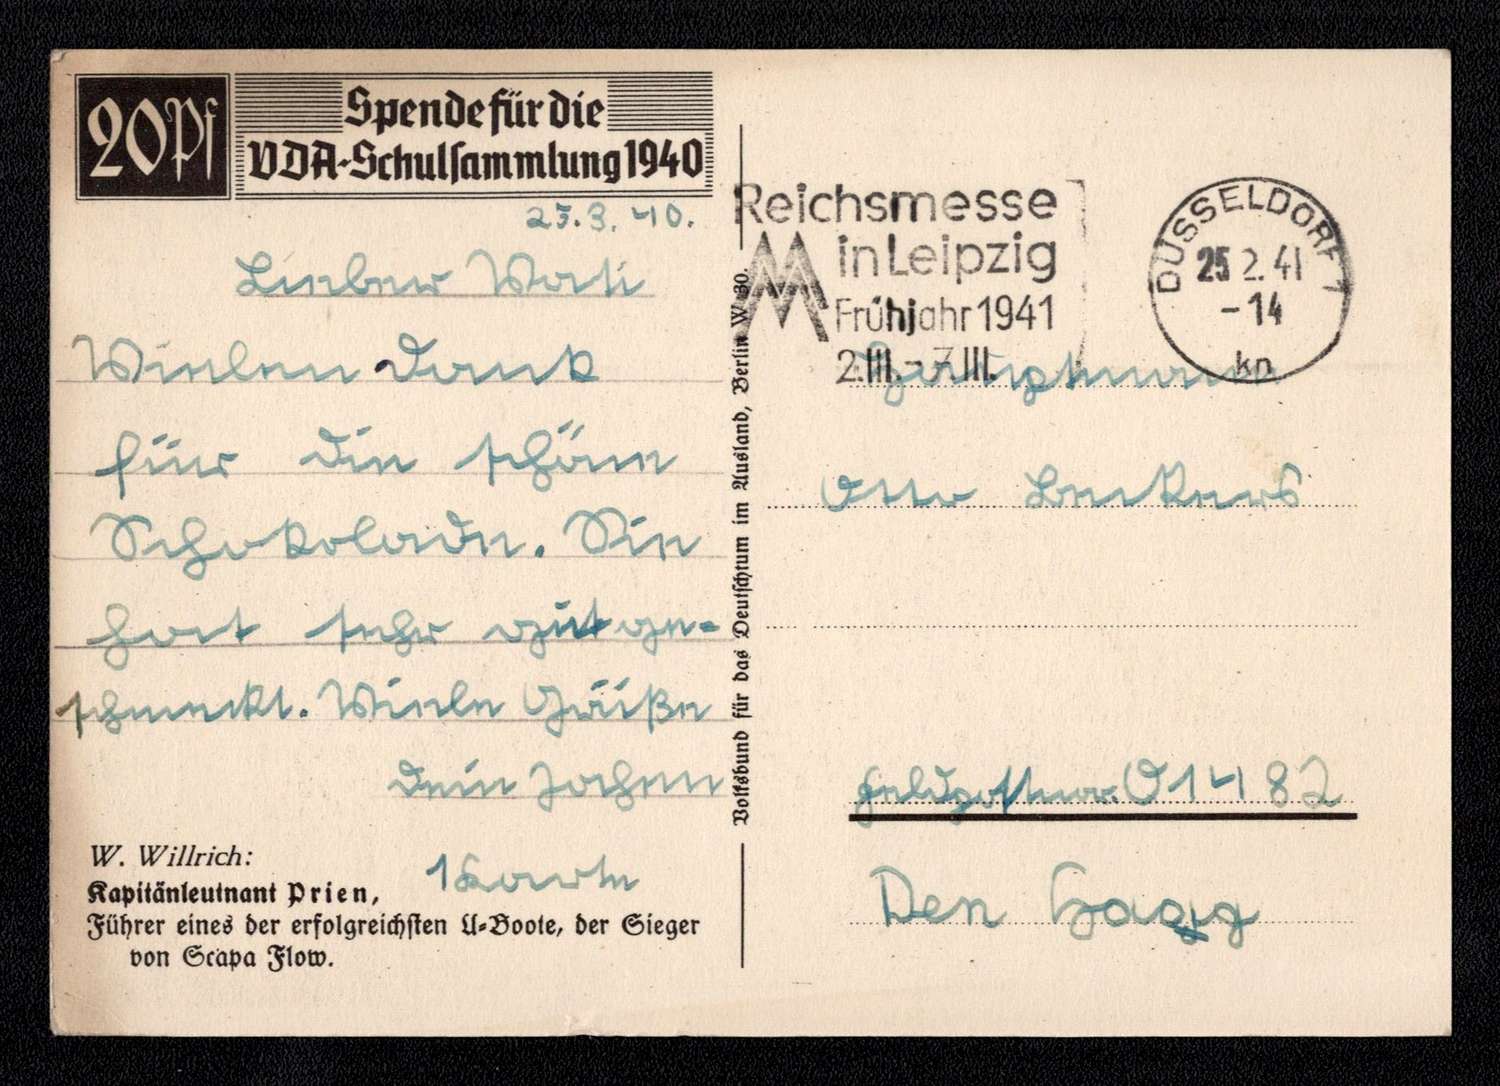 20Pf
Spende für die
VDA-Schulsammlung 1940
23.3.40.
Lieber Vati
Vielen Dank
für die schöne
Schokolade. Sie
hat sehr gut ge-
schmeckt. Viele Grüße
dein Jochen
1 Karte
W. Willrich:
Kapitänleutnant Prien,
Führer eines der erfolgreichsten U-Boote, der Sieger
von Scapa Flow.
Volksbund für das Deutschtum im Ausland, Berlin W 30.
Reichsmesse
in Leipzig
Frühjahr 1941
2.III.-7.III.
DÜSSELDORF 1
25 2.41
-14
kn
Hauptmann
Otto Beckers
Feldpostnr. 01482
Den Haag